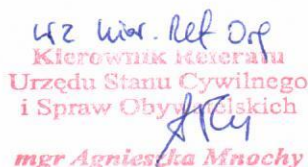 wz Kier. Ref Org
Kierownik Referatu
Urzędu Stanu Cywilnego
i Spraw Obywatelskich
mgr Agnieszka Mnochy